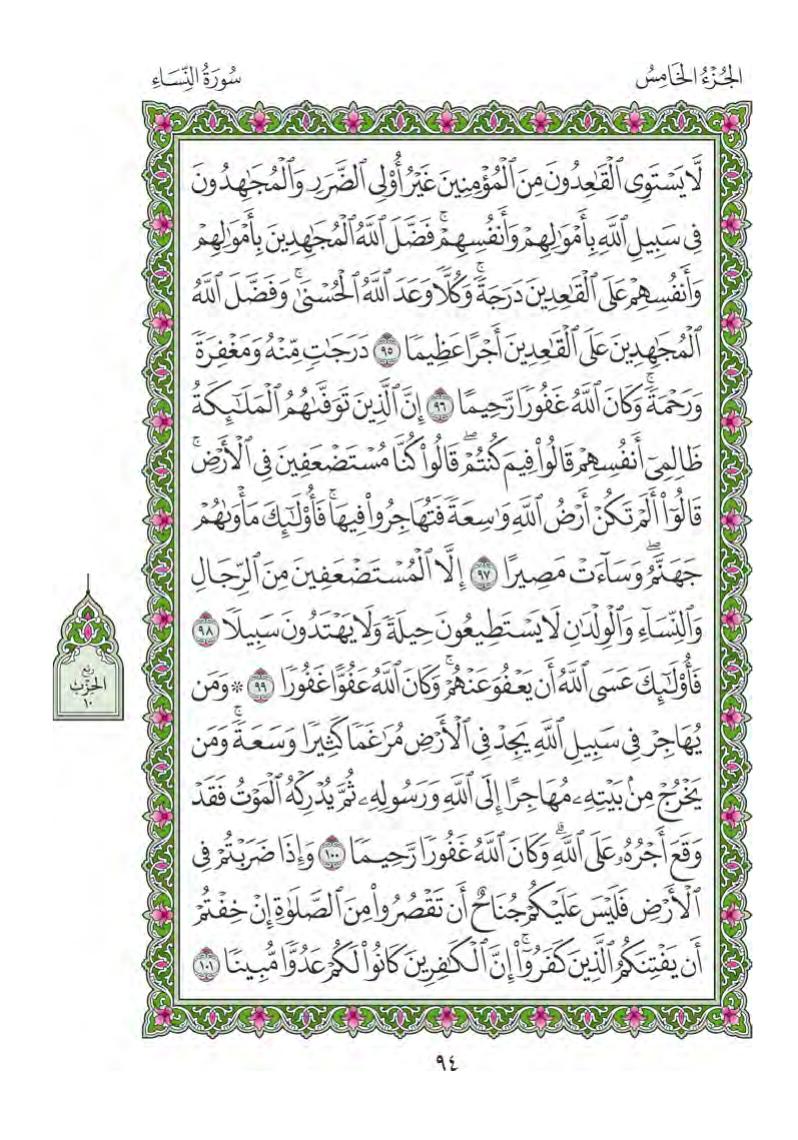 الجُزْءُ الخَامِسُ
سُورَةُ النِّسَاءِ
لَّا يَسْتَوِى ٱلْقَٰعِدُونَ مِنَ ٱلْمُؤْمِنِينَ غَيْرُ أُو۟لِى ٱلضَّرَرِ وَٱلْمُجَٰهِدُونَ
فِى سَبِيلِ ٱللَّهِ بِأَمْوَٰلِهِمْ وَأَنفُسِهِمْ ۚ فَضَّلَ ٱللَّهُ ٱلْمُجَٰهِدِينَ بِأَمْوَٰلِهِمْ
وَأَنفُسِهِمْ عَلَى ٱلْقَٰعِدِينَ دَرَجَةً ۚ وَكُلًّا وَعَدَ ٱللَّهُ ٱلْحُسْنَىٰ ۚ وَفَضَّلَ ٱللَّهُ
ٱلْمُجَٰهِدِينَ عَلَى ٱلْقَٰعِدِينَ أَجْرًا عَظِيمًا ٩٥ دَرَجَٰتٍ مِّنْهُ وَمَغْفِرَةً
وَرَحْمَةً ۚ وَكَانَ ٱللَّهُ غَفُورًا رَّحِيمًا ٩٦ إِنَّ ٱلَّذِينَ تَوَفَّىٰهُمُ ٱلْمَلَٰٓئِكَةُ
ظَالِمِىٓ أَنفُسِهِمْ قَالُوا۟ فِيمَ كُنتُمْ ۖ قَالُوا۟ كُنَّا مُسْتَضْعَفِينَ فِى ٱلْأَرْضِ ۚ
قَالُوٓا۟ أَلَمْ تَكُنْ أَرْضُ ٱللَّهِ وَٰسِعَةً فَتُهَاجِرُوا۟ فِيهَا ۚ فَأُو۟لَٰٓئِكَ مَأْوَىٰهُمْ
جَهَنَّمُ ۖ وَسَآءَتْ مَصِيرًا ٩٧ إِلَّا ٱلْمُسْتَضْعَفِينَ مِنَ ٱلرِّجَالِ
وَٱلنِّسَآءِ وَٱلْوِلْدَٰنِ لَا يَسْتَطِيعُونَ حِيلَةً وَلَا يَهْتَدُونَ سَبِيلًا ٩٨
فَأُو۟لَٰٓئِكَ عَسَى ٱللَّهُ أَن يَعْفُوَ عَنْهُمْ ۚ وَكَانَ ٱللَّهُ عَفُوًّا غَفُورًا ٩٩ * وَمَن
يُهَاجِرْ فِى سَبِيلِ ٱللَّهِ يَجِدْ فِى ٱلْأَرْضِ مُرَٰغَمًا كَثِيرًا وَسَعَةً ۚ وَمَن
يَخْرُجْ مِنۢ بَيْتِهِۦ مُهَاجِرًا إِلَى ٱللَّهِ وَرَسُولِهِۦ ثُمَّ يُدْرِكْهُ ٱلْمَوْتُ فَقَدْ
وَقَعَ أَجْرُهُۥ عَلَى ٱللَّهِ ۗ وَكَانَ ٱللَّهُ غَفُورًا رَّحِيمًا ١٠٠ وَإِذَا ضَرَبْتُمْ فِى
ٱلْأَرْضِ فَلَيْسَ عَلَيْكُمْ جُنَاحٌ أَن تَقْصُرُوا۟ مِنَ ٱلصَّلَوٰةِ إِنْ خِفْتُمْ
أَن يَفْتِنَكُمُ ٱلَّذِينَ كَفَرُوٓا۟ ۚ إِنَّ ٱلْكَٰفِرِينَ كَانُوا۟ لَكُمْ عَدُوًّا مُّبِينًا ١٠١
رُبع
الحِزْب
١٠
٩٤